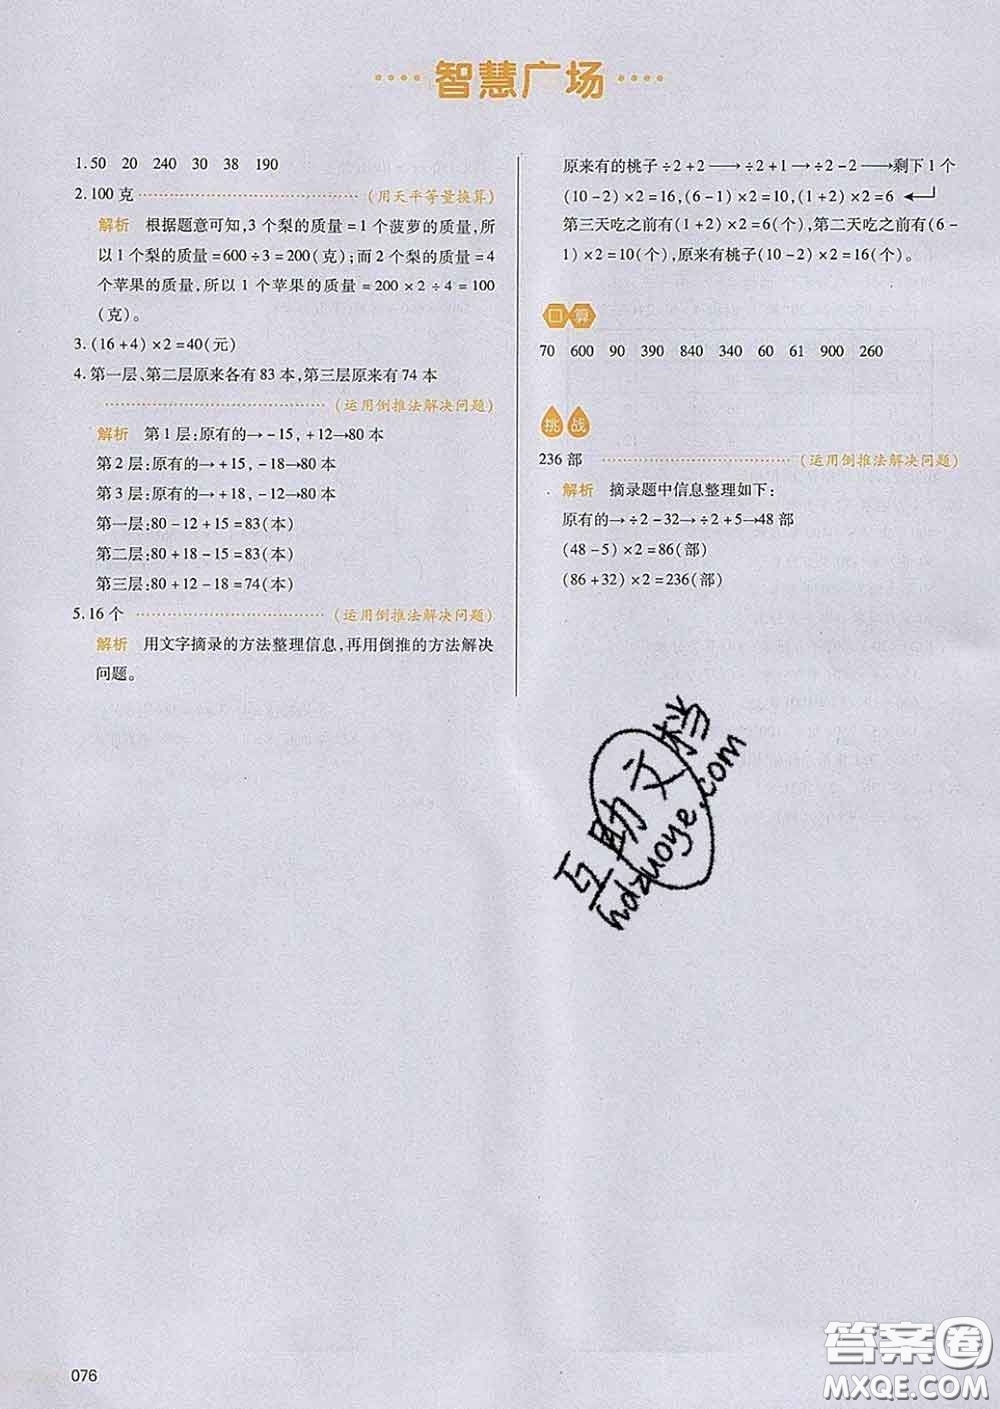 智慧广场
1.50 20 240 30 38 190
2.100 克 (用天平等量换算)
解析 根据题意可知,3 个梨的质量=1 个菠萝的质量,所
以 1 个梨的质量=600÷3=200(克);而 2 个梨的质量=4
个苹果的质量,所以 1 个苹果的质量=200×2÷4=100
(克)。
3.(16+4)×2=40(元)
4.第一层、第二层原来各有 83 本,第三层原来有 74 本
(运用倒推法解决问题)
解析 第 1 层:原有的→-15,+12→80 本
第 2 层:原有的→+15,-18→80 本
第 3 层:原有的→+18,-12→80 本
第一层:80-12+15=83(本)
第二层:80+18-15=83(本)
第三层:80+12-18=74(本)
5.16 个 (运用倒推法解决问题)
解析 用文字摘录的方法整理信息,再用倒推的方法解决
问题。
原来有的桃子÷2+2→÷2+1→÷2-2→剩下 1 个
(10-2)×2=16,(6-1)×2=10,(1+2)×2=6
第三天吃之前有(1+2)×2=6(个),第二天吃之前有(6-
1)×2=10(个),原来有桃子(10-2)×2=16(个)。
口算
70 600 90 390 840 340 60 61 900 260
挑战
236 部 (运用倒推法解决问题)
解析 摘录题中信息整理如下:
原有的→÷2-32→÷2+5→48 部
(48-5)×2=86(部)
(86+32)×2=236(部)
互助文档
hdzuoye.com
076
答案圈
MXQE.COM